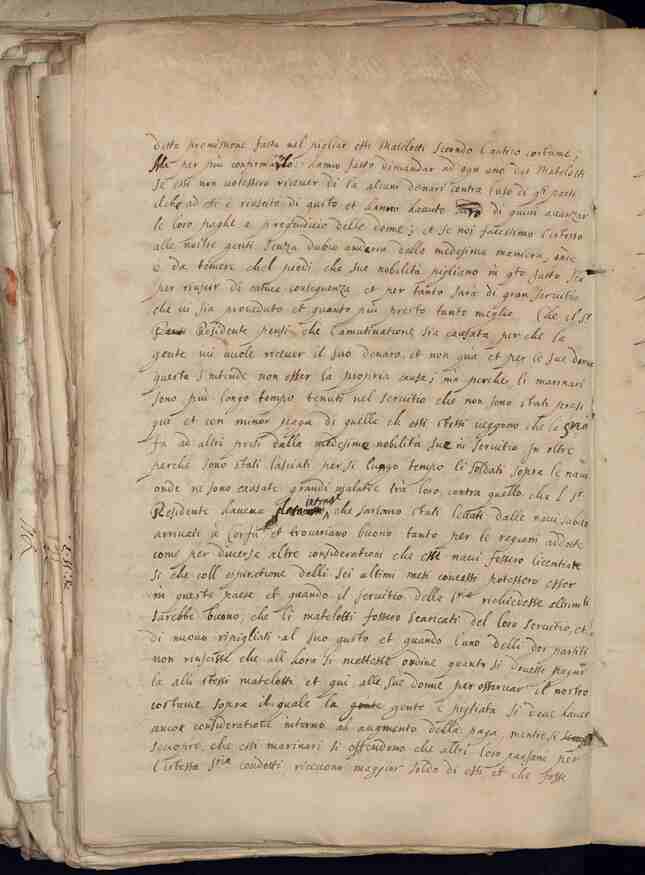 detta promissione fatta nel pigliar essi Matelotti secondo l'antico costume;
Ma per più confirmarlo hanno fatto dimandar ad ogni uno dei Matelotti
se essi non volessero ricever di la alcuni denari contra l'uso di gli patti
ilche ad essi è riuscito di gusto et hanno havuto di quivi avanzar
le loro paghe a pregiudicio delle donne; et se noi facessimo l'istesso
alle nostre genti senza dubio anderia della medesima maniera, onde
è da temere chel piedi che sue nobilità pigliano in q̃to fatto sia
per riuscir di cattiva conseguenza et per tanto sarà di gran servitio
che vi sia proveduto et quanto più presto tanto meglio. Che il Sr
Residente pensi che l'amutinatione sia causata perche la
gente vi vuole ricever il suo denaro, et non qua et per le sue donne
questa s'intende non esser la propria causa; ma perche li marinari
sono più longo tempo tenuti nel servitio che non sono stati presi
qui et con minor paga di quella ch essi stessi veggono che le
fa ad altri presi dalla medesima nobilità sue in servitio In oltre
perche sono stati lasciati per si lungo tempo li soldati sopra le navi
onde ne sono causate grandi malatie tra loro, contra quello che l Sr
Residente haveva intention, che sariano stati levati dalle navi subito
arrivati à Corfù et trovariano buono tanto per le ragioni addotte
come per diverse altre considerationi che esse navi fossero licentiate
si che coll espiratione delli sei ultimi mesi concessi potessero esser
in queste paese et quando il servitio della Sria richiedesse altrimti
sarebbe buono, che li matelotti fossero scaricati del loro servitio, et
di nuovo ripigliati al suo gusto et quando l'uno delli doi partiti
non riuscisse che all hora si mettesse ordine quanto si dovesse pagar
la alli stessi matelotti et qui alle sue donne per osservar il nostro
costume sopra il quale la gente è pigliata si deve haver
ancor consideratione intorno al augmento della paga, mentre si
scuopre, che essi marinari si offendono che altri loro paesane per
l'istessa Sria condotti riceveno maggior soldo di essi et che fosse